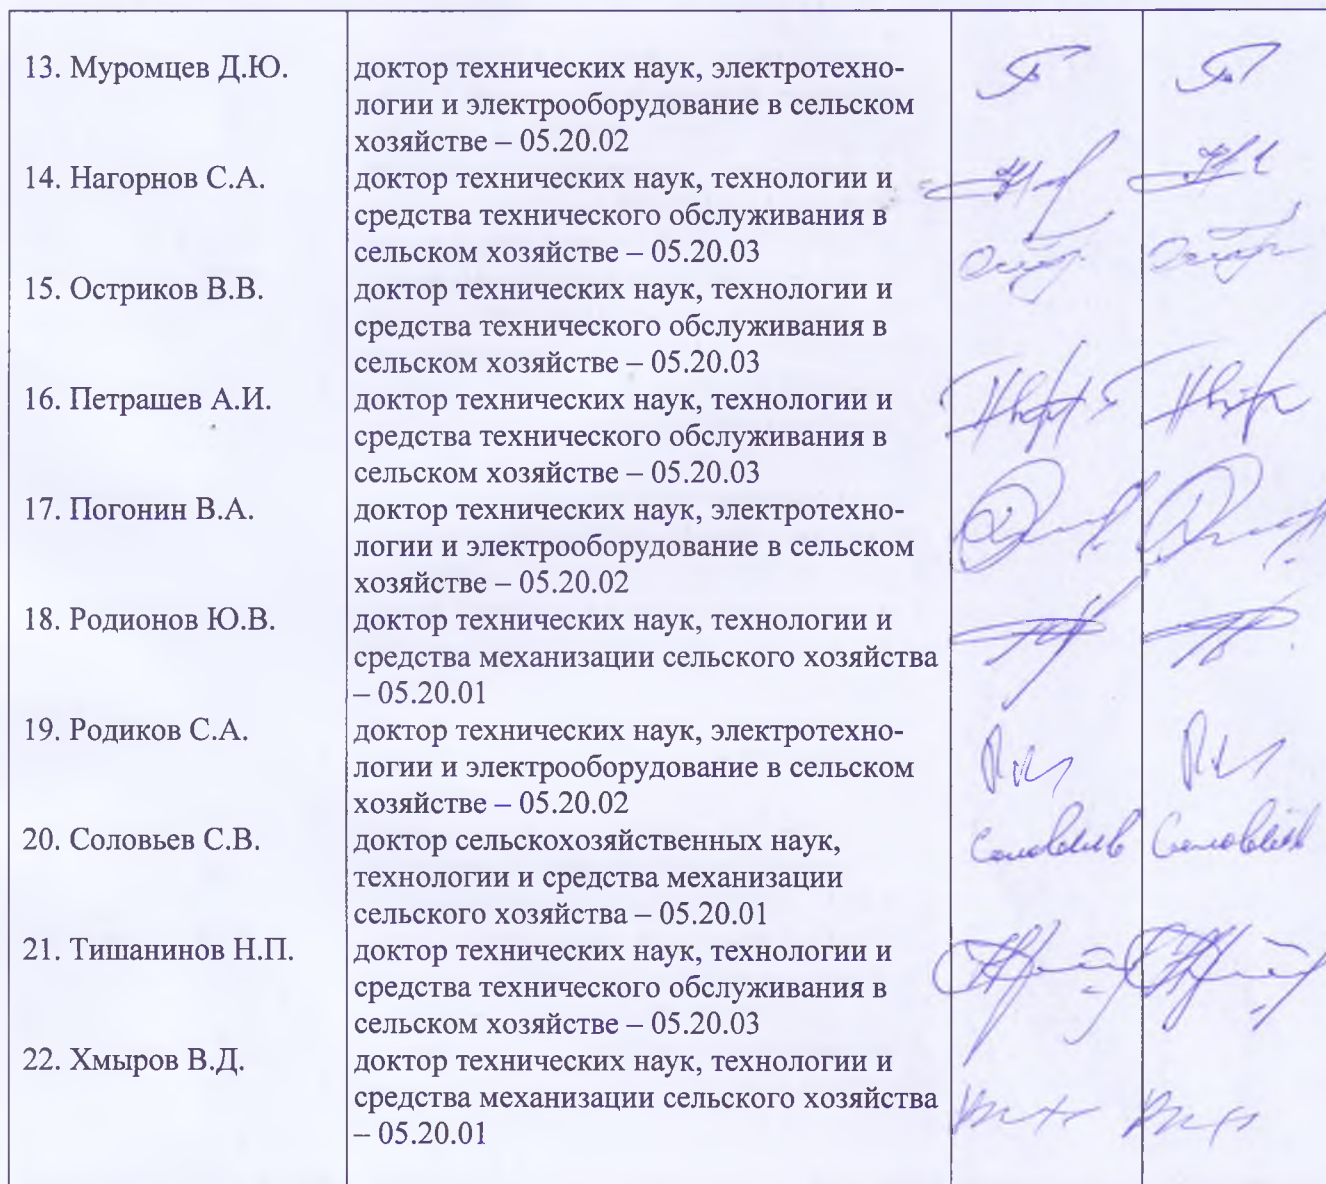 13. Муромцев Д.Ю. доктор технических наук, электротехно-
логии и электрооборудование в сельском
хозяйстве – 05.20.02
14. Нагорнов С.А. доктор технических наук, технологии и
средства технического обслуживания в
сельском хозяйстве – 05.20.03
15. Остриков В.В. доктор технических наук, технологии и
средства технического обслуживания в
сельском хозяйстве – 05.20.03
16. Петрашев А.И. доктор технических наук, технологии и
средства технического обслуживания в
сельском хозяйстве – 05.20.03
17. Погонин В.А. доктор технических наук, электротехно-
логии и электрооборудование в сельском
хозяйстве – 05.20.02
18. Родионов Ю.В. доктор технических наук, технологии и
средства механизации сельского хозяйства
– 05.20.01
19. Родиков С.А. доктор технических наук, электротехно-
логии и электрооборудование в сельском
хозяйстве – 05.20.02
20. Соловьев С.В. доктор сельскохозяйственных наук,
технологии и средства механизации
сельского хозяйства – 05.20.01
21. Тишанинов Н.П. доктор технических наук, технологии и
средства технического обслуживания в
сельском хозяйстве – 05.20.03
22. Хмыров В.Д. доктор технических наук, технологии и
средства механизации сельского хозяйства
– 05.20.01